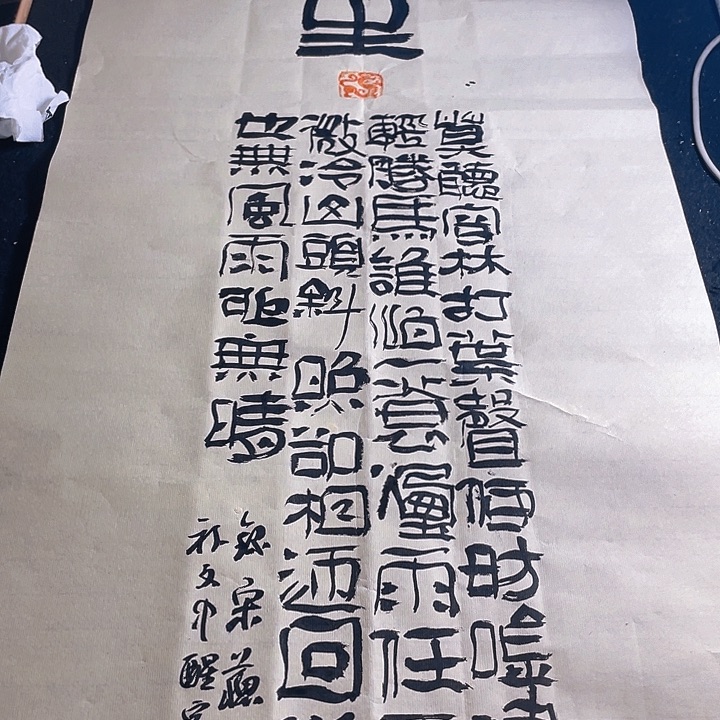 莫聽穿林打葉聲何妨
輕勝馬誰怕一蓑煙雨任
微冷山頭斜照卻相迎回
也無風雨也無晴
錄宋蘇